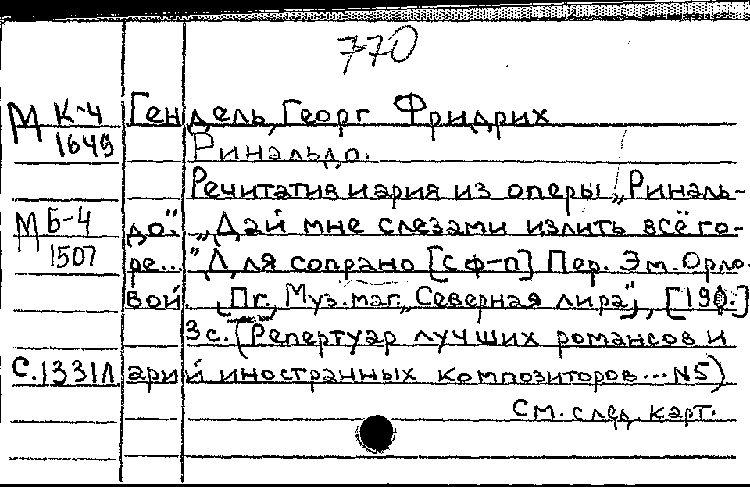 770
М К-4 Гендель, Георг Фридрих
1649 Ринальдо.
Речитатив и ария из оперы „Риналь-
М Б-4 до". „Дай мне слезами излить всё го-
1507 ре..." Для сопрано [с ф-п] Пер. Эм. Орло-
вой. [Пг., Муз. маг. „Северная лира", [191.]
3 с. (Репертуар лучших романсов и
С.1331Л арий иностранных композиторов... N5)
См. след. карт.